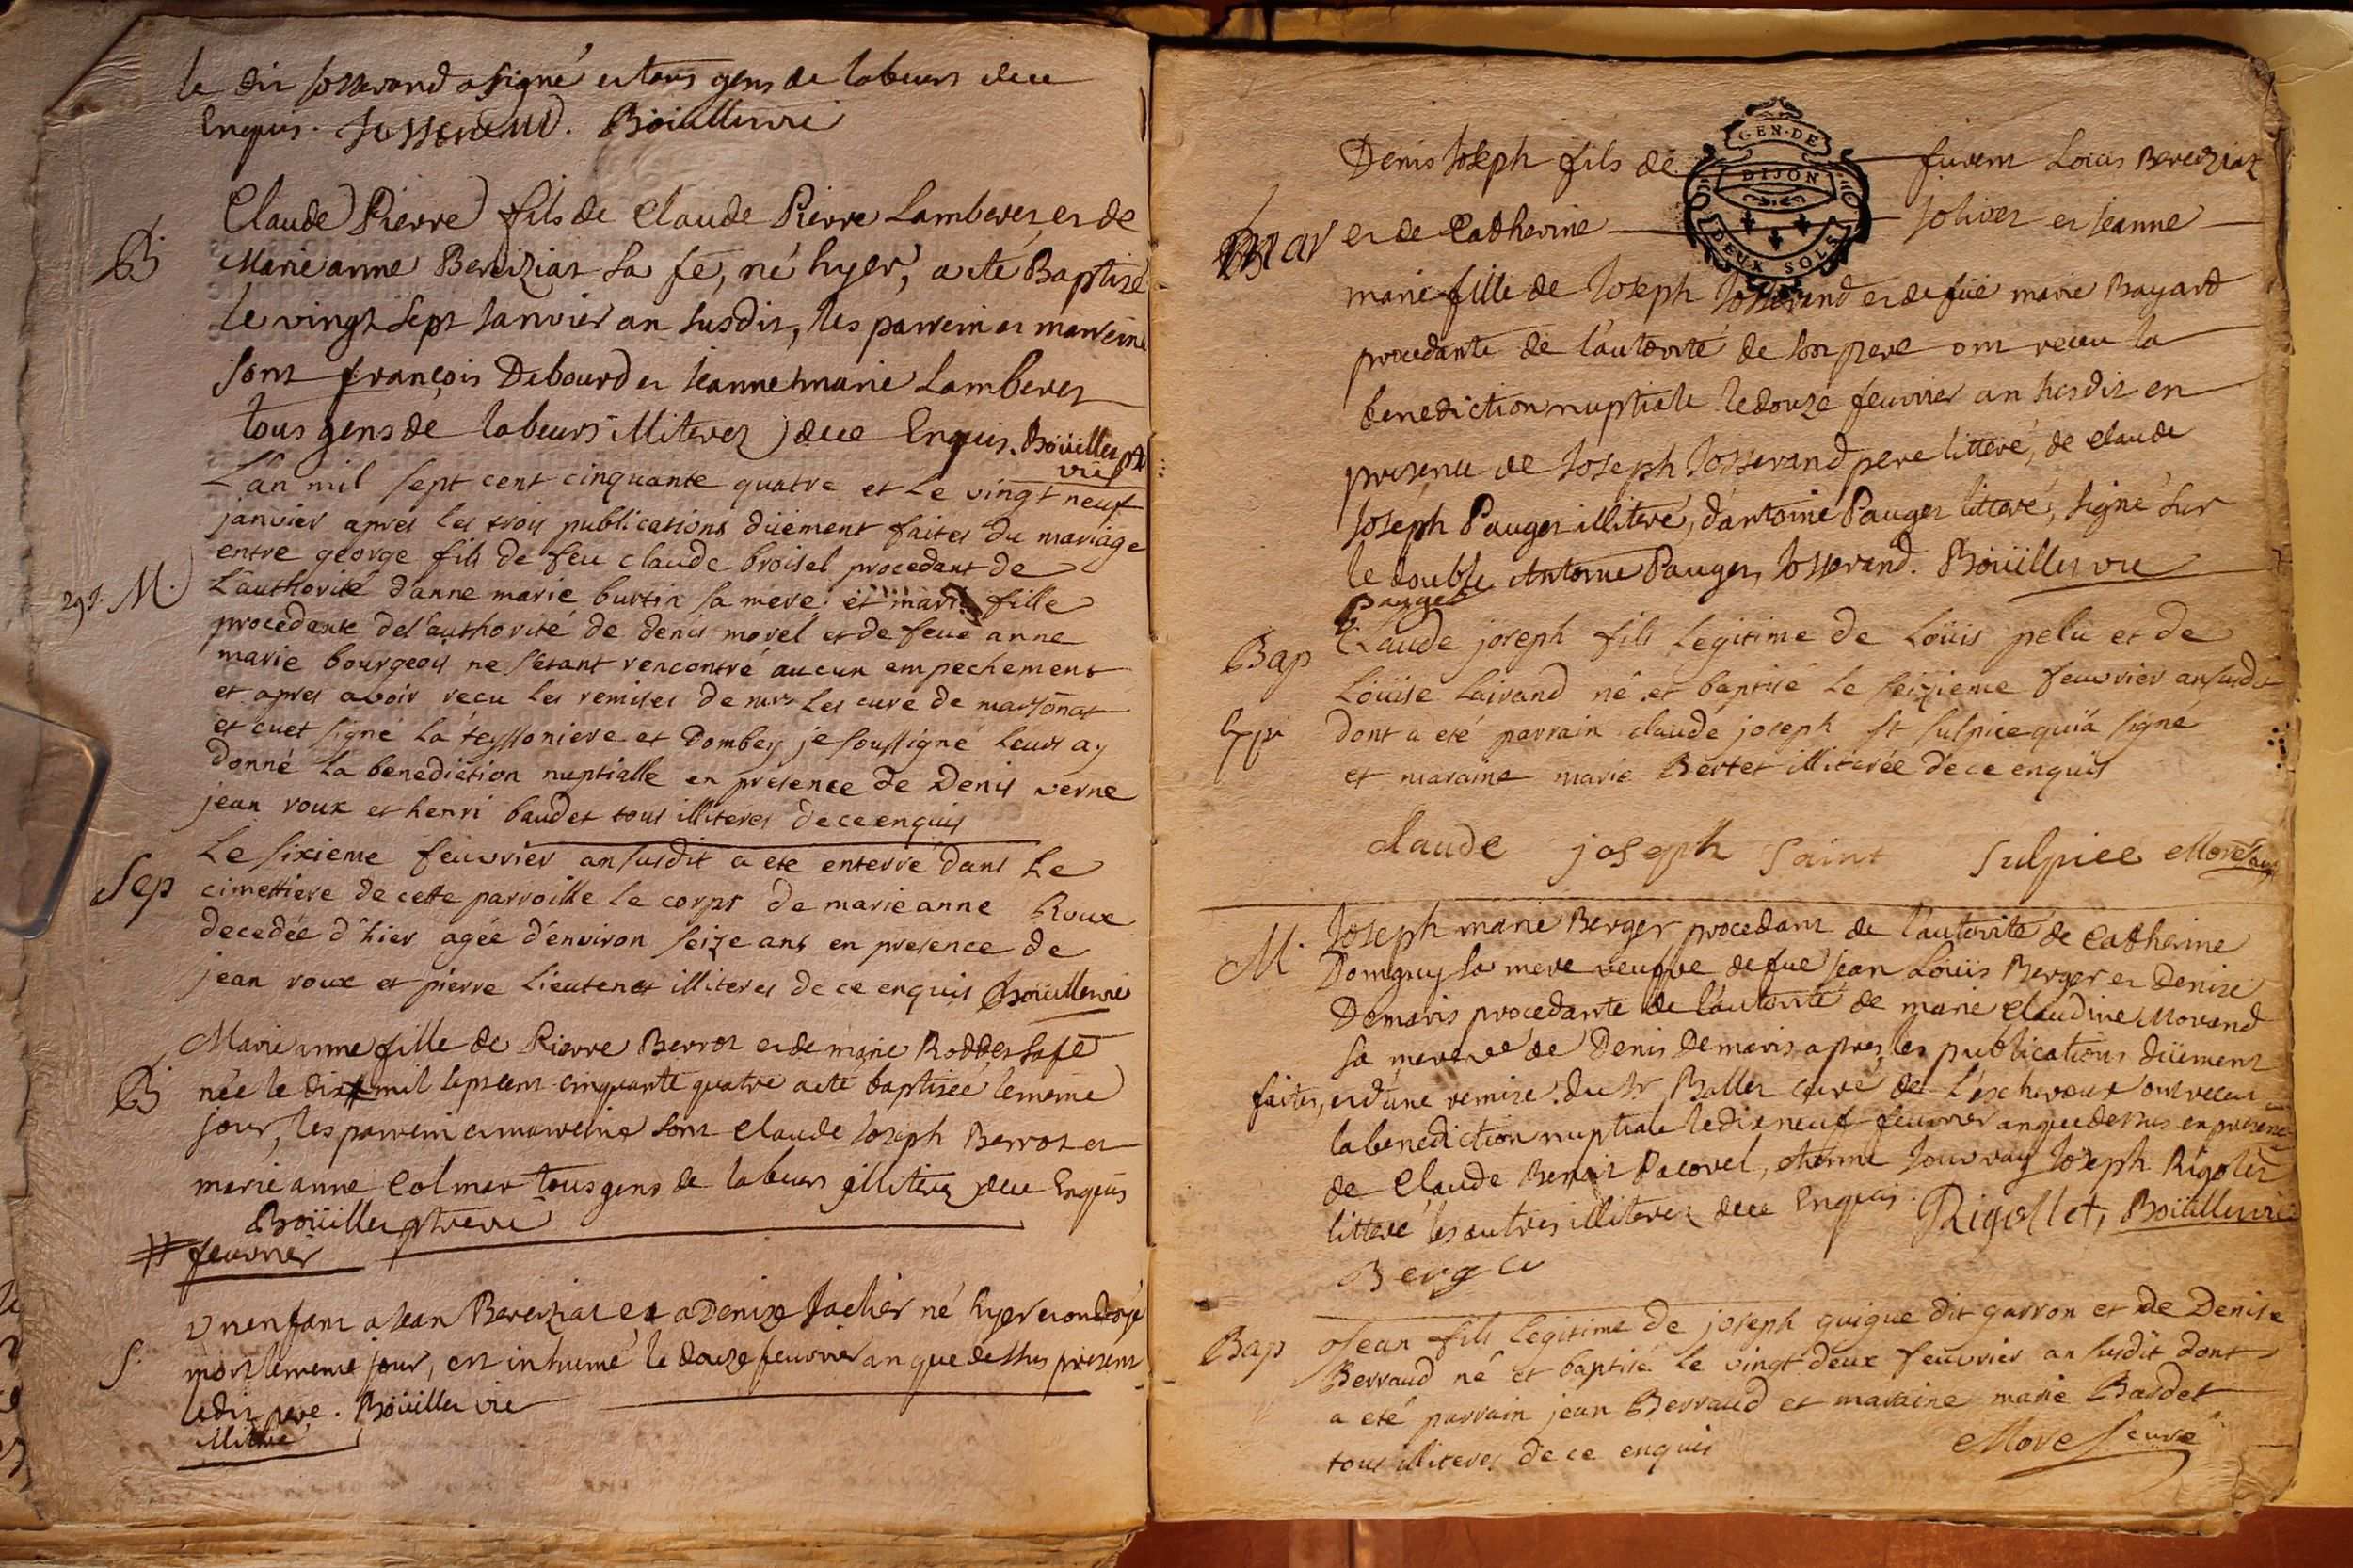 le dit Josserand a signé et tous gens de labeurs de ce
Enquis. Josserand. Boüiller vic
Claude Pierre fils de Claude Pierre Lamberet, et de
B
Marie anne Bereiziat sa fe, né hyer, a été Baptisé
le vingt sept Janvier an susdit, les parrein et marreine
sont françois Debourd et Jeanne marie Lamberet
tous gens de labeurs illiterez de ce Enquis. Boüiller ptre
vic
L'an mil sept cent cinquante quatre et le vingt neuf
janvier apres les trois publications düement faites du mariage
entre george fils de feu claude broisel procedant de
M.
L'authorité d'anne marie burtin sa mere; et marie fille
procedante de l'authorité de denis morel et de feue anne
marie bourgeois ne s'etant rencontré aucun empechement
et apres avoir reçu les remises de mrs les curé de marsonas
et cuet signé la teyssoniere et Dombey je soussigné leurs ay
donné la benediction nuptialle en presence de Denis verne
jean roux et henri baudet tous illiteres de ce enquis
Le sixieme feuvrier an susdit a eté enterré dans le
Sep
cimettiere de cette parroisse le corps de marie anne Roux
decedée d'hier agée d'environ seize ans en presence de
jean roux et pierre Lieutenet illiteres de ce enquis Boüiller vic
Marie anne fille de Pierre Berrot et de marie Roddet sa fe
B
née le dix # mil sept cent cinquante quatre a été baptisée le meme
jour, les parrein et marreine sont Claude Joseph Berrot et
marie anne Colmar tous gens de labeurs illiterez de ce Enquis
Boüiller ptre vic
# feuvrier
Un enfant a Jean Bereiziat et a Denize Jaclier né hyer et ondoyé
S.
mort le meme jour, est inhumé le douze feuvrier an que dessus present
le dit pere. Boüiller vic
illitéré
Denis Joseph fils de furent Louis Bereiziat
GEN·DE
DIJON
DEUX SOLS
Mar
et de Catherine Jolivet et Jeanne
marie fille de Joseph Josserand et de füe marie Bayard
procedante de l'autorité de son pere ont receu la
benediction nuptiale le douze feuvrier an susdit en
presence de Joseph Josserand pere litteré, de Claude
Joseph Pauget illiteré, d'antoine Pauget litteré, signé sur
le double Antoine Pauget, Josserand. Boüiller vic
Pauget
Claude joseph fils legitime de Loüis pelu et de
Bap
Loüise Lairand né et baptisé le seizieme feuvrier an susdit
dont a eté parrain claude joseph st sulpice qui a signé
et maraine marie Bertet illiterée de ce enquis
claude joseph saint sulpice Morel curé
M.
Joseph marie Berger procedant de l'autorité de Catherine
Domguy sa mere veufve de füe Jean Loüis Berger et Denise
Demaris procedante de l'autorité de marie Claudine Morand
sa mere ve de Denis Demaris apres les publications düement
faites, et d'une remise du Sr Ballet curé de Lescheroux ont receu
la benediction nuptiale le dix neuf feuvrier an que dessus en presence
de Claude Benoit Pacorel, etienne Jouvray Joseph Rigolet
litteré les autres illiterez de ce Enquis. Rigollet, Boüiller vic
Berger
Bap
Jean fils legitime de joseph guigue dit garron et de Denise
Berraud né et baptisé le vingt deux feuvrier an susdit dont
a eté parrain jean Berraud et maraine marie Bardet
tous illiteres de ce enquis Morel curé